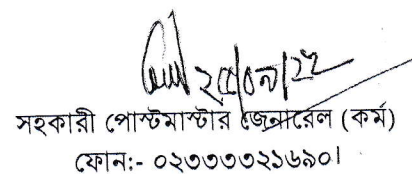 ২৫/০৭/২২
সহকারী পোস্টমাস্টার জেনারেল (কর্ম)
ফোন:- ০২৩৩৩৩২১৬৯০।